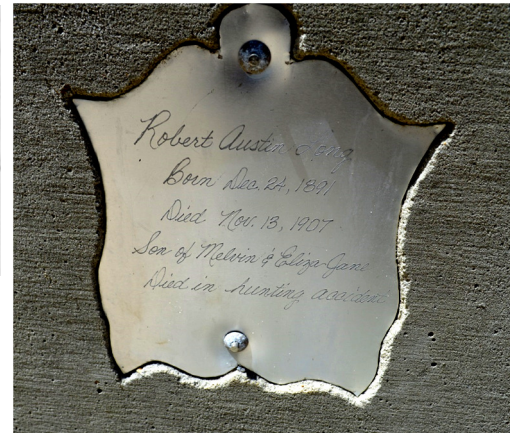 Robert Austin
Born Dec. 24, 1891
Died Nov. 13, 1907
Son of Melvin & Eliza Jane
Died in hunting accident